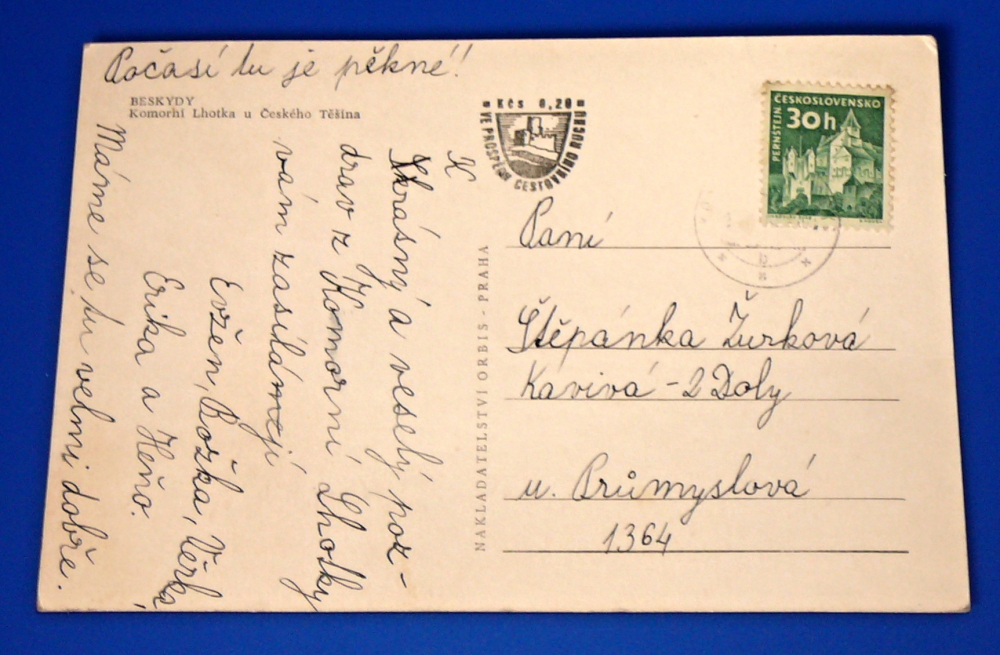 Počasí tu je pěkné!!
BESKYDY
Komorní Lhotka u Českého Těšína
K
Krásný a veselý poz-
drav z Komorní Lhotky
vám zasílámejí
Evžen, Božka, Věrka,
Erika a Heňo.
Máme se tu velmi dobře.
NAKLADATELSTVÍ ORBIS - PRAHA
Kčs 0,20
VE PROSPĚCH CESTOVNÍHO RUCHU
ČESKOSLOVENSKO
30h
PERNŠTEJN
Paní
Štěpánka Žurková
Kavivá - 2 Doly
u. Průmyslová
1364